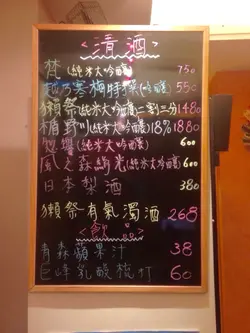 <清酒>
梵(純米大吟醸) 750
越乃寒梅特撰(吟醸) 550
獺祭(純米大吟醸)二割三分 1480
楯野川(純米大吟醸)18% 1880
(純米大吟醸) 600
風之森 (純米大吟醸) 600
日本梨酒 380
獺祭有氣濁酒 268
<飲品>
青森蘋果汁 38
巨峰乳酸梳打 60